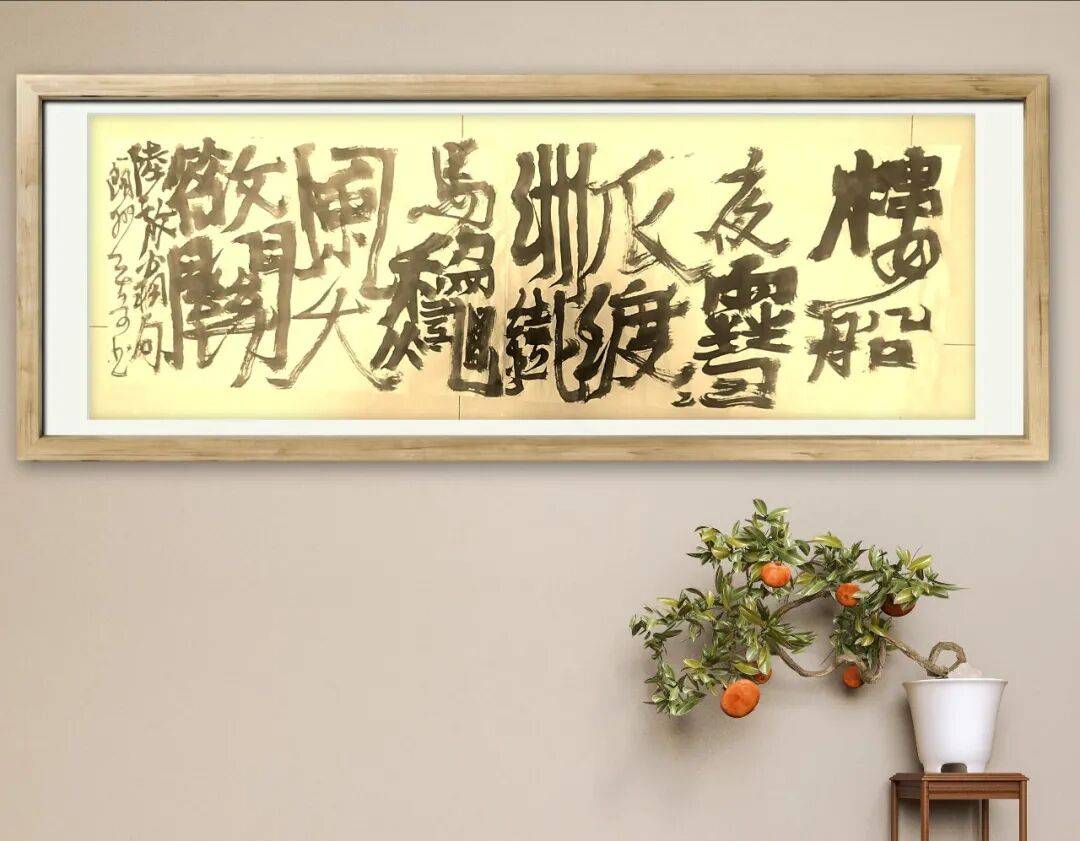 樓船
夜雪
瓜洲渡鐵
馬龝
風大
散關
陸放翁詩句